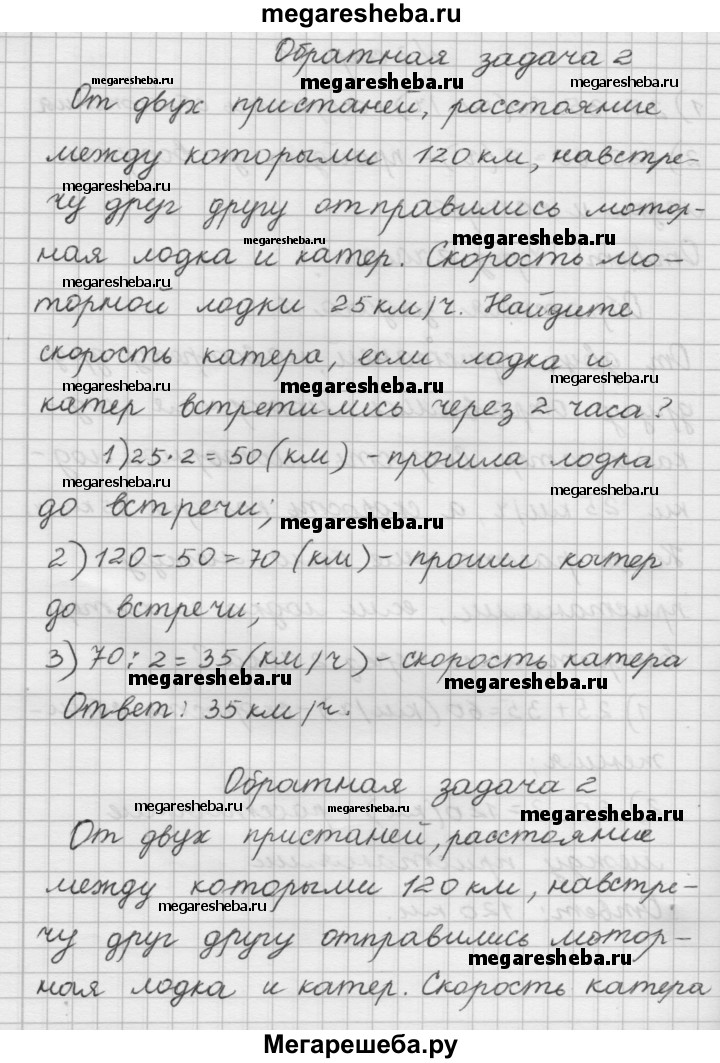 megaresheba.ru
Обратная задача 2
megaresheba.ru megaresheba.ru megaresheba.ru
От двух пристаней, расстояние
между которыми 120 км, навстре-
megaresheba.ru
чу друг другу отправились мотор-
megaresheba.ru
ная лодка и катер. Скорость мо-
megaresheba.ru
торной лодки 25 км/ч. Найдите
скорость катера, если лодка и
megaresheba.ru megaresheba.ru megaresheba.ru
катер встретились через 2 часа?
1) 25·2=50 (км) - прошла лодка
megaresheba.ru
до встречи;
megaresheba.ru
2) 120-50=70 (км) - прошел катер
до встречи,
3) 70:2=35 (км/ч) - скорость катера
megaresheba.ru megaresheba.ru
Ответ: 35 км/ч.
Обратная задача 2
megaresheba.ru megaresheba.ru megaresheba.ru
От двух пристаней, расстояние
между которыми 120 км, навстре-
megaresheba.ru
чу друг другу отправились мотор-
megaresheba.ru
ная лодка и катер. Скорость катера
megaresheba.ru
Мегарешеба.ру